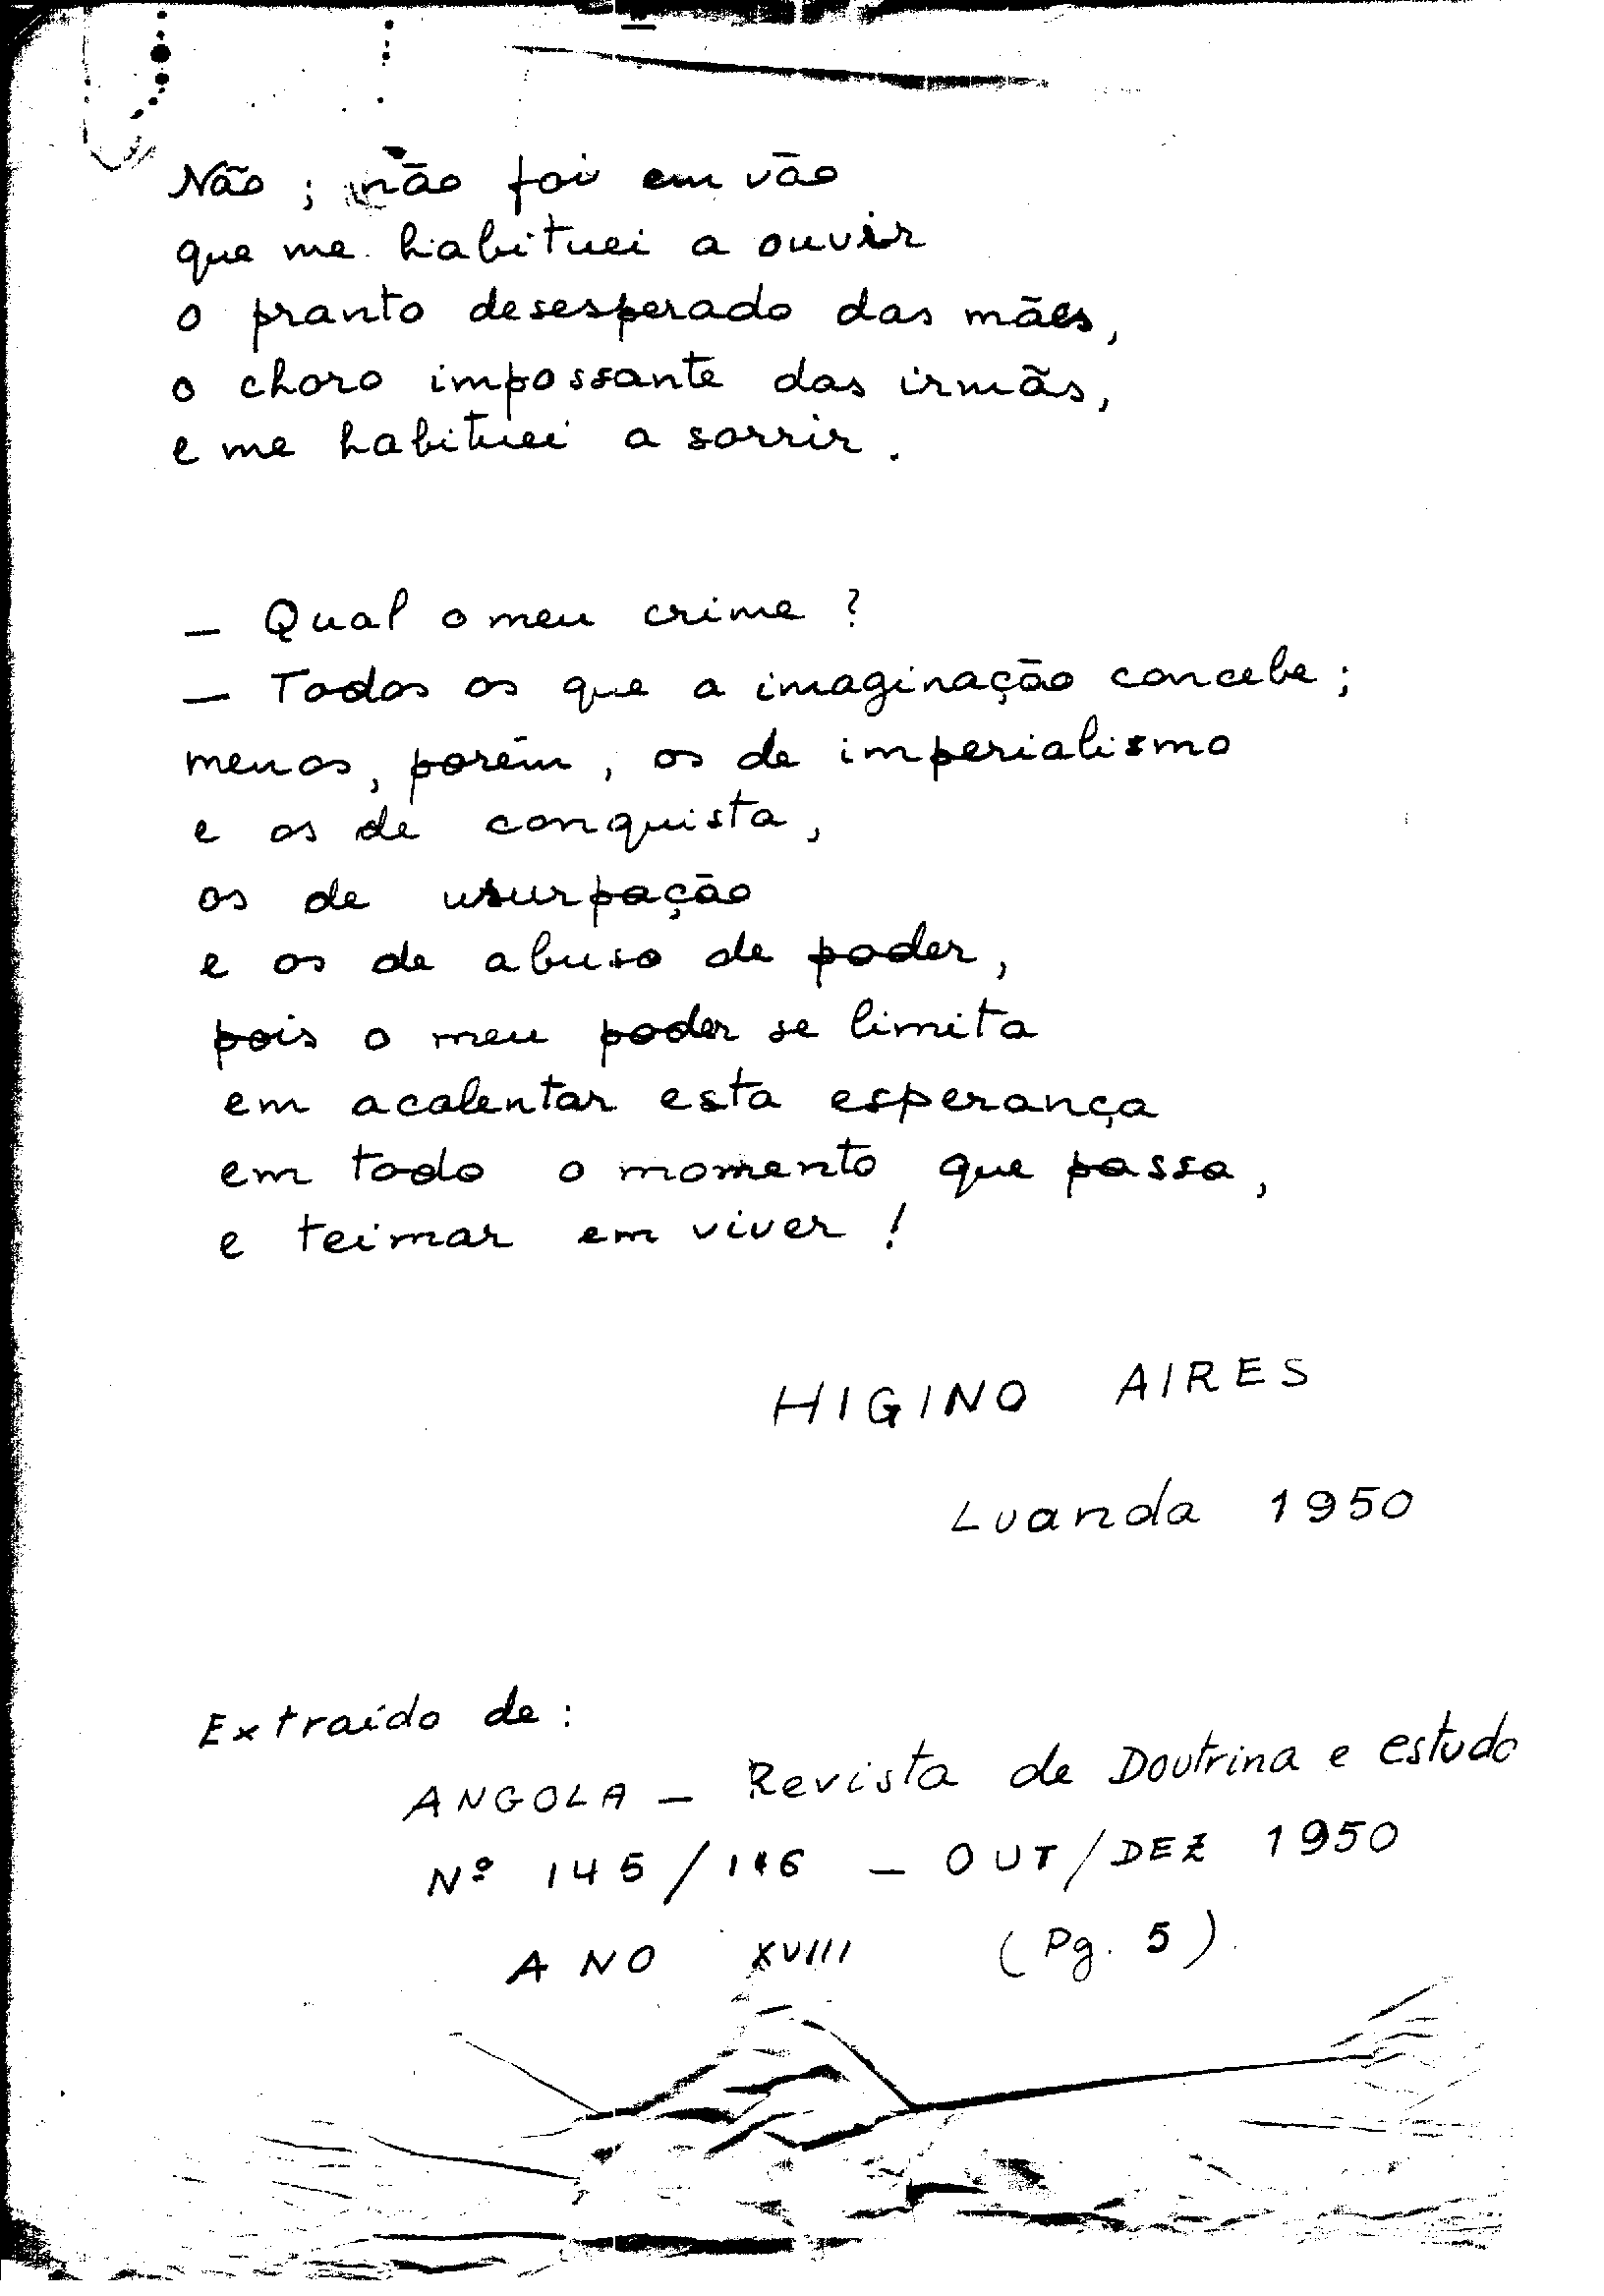 Não; não foi em vão
que me habituei a ouvir
o pranto desesperado das mães,
o choro impossante das irmãs,
e me habituei a sorrir.
— Qual o meu crime?
— Todos os que a imaginação concebe;
menos, porém, os de imperialismo
e os de conquista,
os de usurpação
e os de abuso de poder,
pois o meu poder se limita
em acalentar esta esperança
em todo o momento que passa,
e teimar em viver!
HIGINO AIRES
Luanda 1950
Extraído de:
ANGOLA — Revista de Doutrina e estudo
Nº 145/146 — OUT/DEZ 1950
ANO XVIII (Pg. 5)